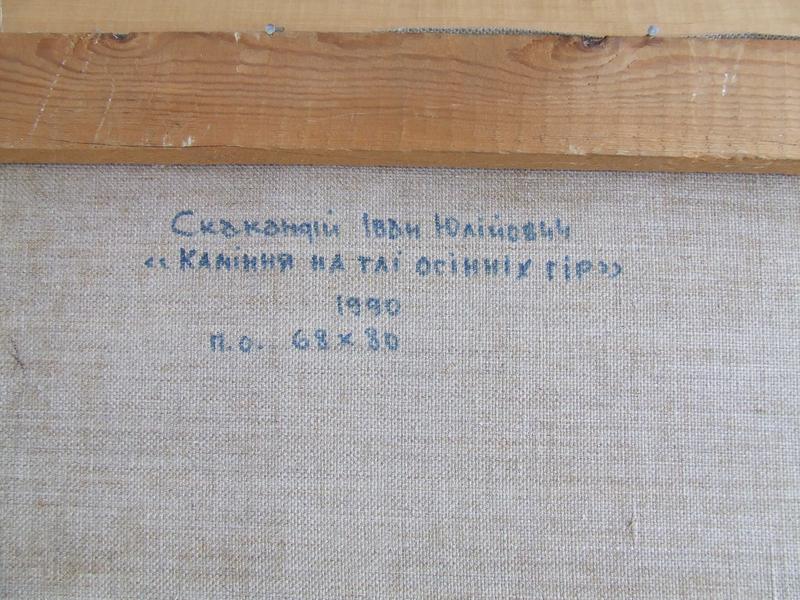 Скакандій Іван Юлійович
«Каміння на тлі осінніх гір»
1990
п.о. 68×80